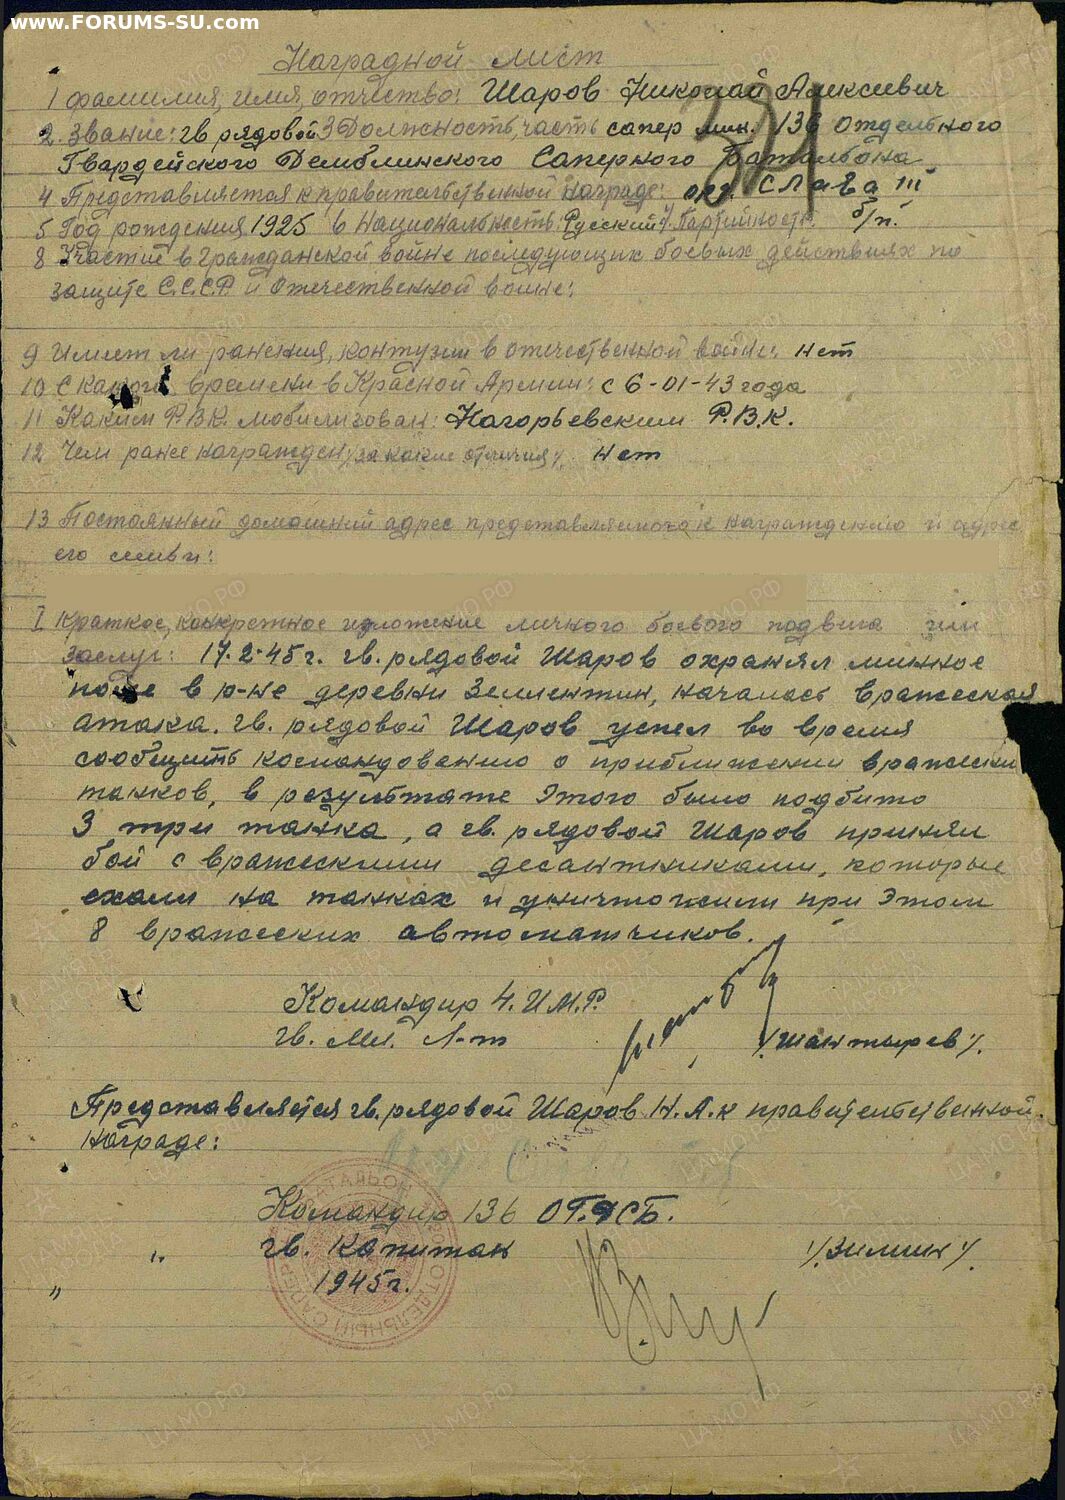 www.FORUMS-SU.com
Наградной лист
1 фамилия, имя, отчество: Шаров Николай Алексеевич
2. Звание: гв рядовой 3 Должность, часть сапер мин. 136 отдельного
Гвардейского Демблинского Саперного Батальона
4 Представляется к правительственной награде: орд. Слава III
5 Год рождения 1925 6 Национальность Русский 7 Партийность: б/п.
8 Участие в Гражданской войне последующих боевых действиях по
защите С.С.С.Р. и Отечественной войне:
9 Имеет ли ранения, контузии в отечественной войне: нет
10 С какого времени в Красной Армии: с 6-01-43 года
11 Каким Р.В.К. мобилизован: Нагорьевским Р.В.К.
12 Чем ранее награжден /за какие отличия/. Нет
13 Постоянный домашний адрес представляемого к награждению и адрес
его семьи:
I Краткое, конкретное изложение личного боевого подвига или
заслуг: 17.2.45 г. гв. рядовой Шаров охранял минное
поле в р-не деревни Зеллентин, началась вражеская
атака. Гв. рядовой Шаров успел во время
сообщить командованию о приближении вражески
танков, в результате этого было подбито
3 три танка, а гв. рядовой Шаров принял
бой с вражескими десантниками, которые
ехали на танках и уничтожили при этом
8 вражеских автоматчиков.
Командир 4. И.М.Р.
гв. Мл. Л-т /Шантырев/.
Представляется гв. рядовой Шаров Н.А. к правительственной
награде:
Командир 136 ОГ.СБ.
" гв. Капитан /Зимин/.
" 1945 г.